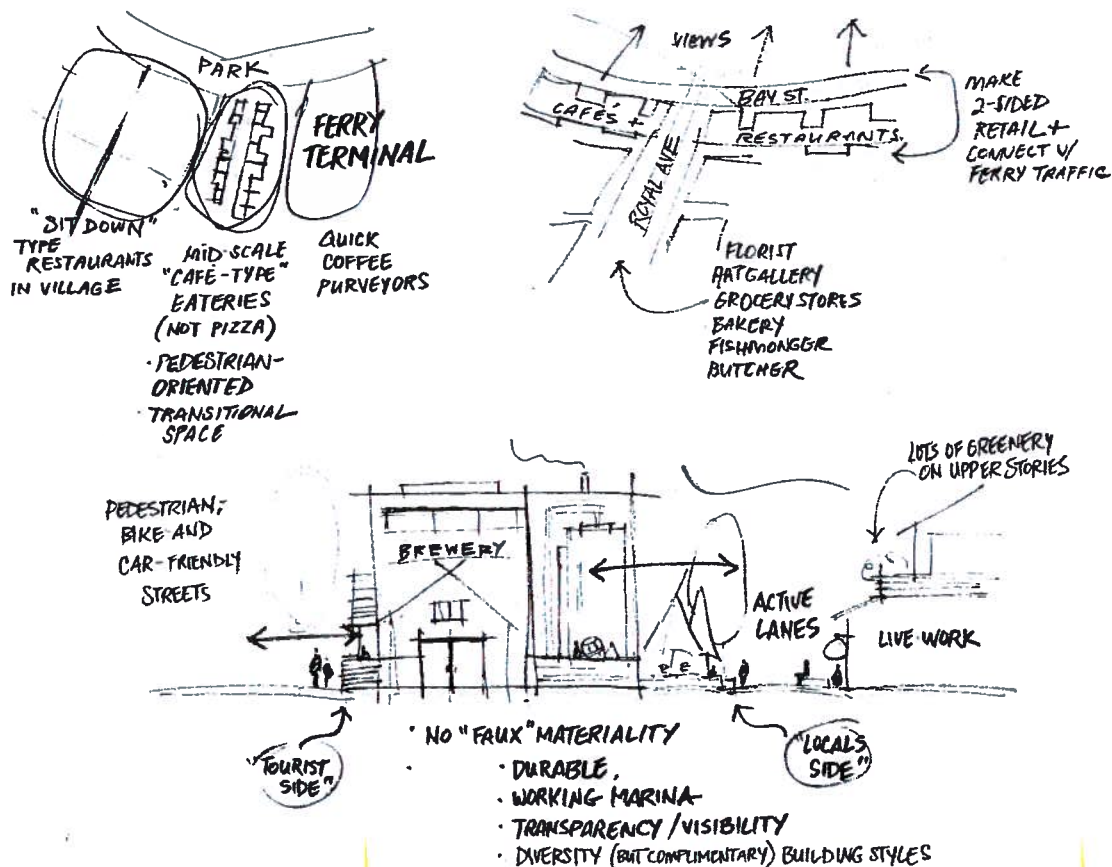 PARK
FERRY
TERMINAL
"SIT DOWN"
TYPE
RESTAURANTS
IN VILLAGE
MID-SCALE
"CAFÉ-TYPE"
EATERIES
(NOT PIZZA)
· PEDESTRIAN-
ORIENTED
· TRANSITIONAL
SPACE
QUICK
COFFEE
PURVEYORS
VIEWS
BAY ST.
CAFÉS +
RESTAURANTS.
ROYAL AVE
MAKE
2-SIDED
RETAIL +
CONNECT W/
FERRY TRAFFIC
FLORIST
ART GALLERY
GROCERY STORES
BAKERY
FISHMONGER
BUTCHER
PEDESTRIAN,
BIKE AND
CAR-FRIENDLY
STREETS
BREWERY
ACTIVE
LANES
LOTS OF GREENERY
ON UPPER STORIES
LIVE WORK
"TOURIST
SIDE"
"LOCALS
SIDE"
· NO "FAUX" MATERIALITY
· DURABLE,
· WORKING MARINA
· TRANSPARENCY / VISIBILITY
· DIVERSITY (BUT COMPLIMENTARY) BUILDING STYLES